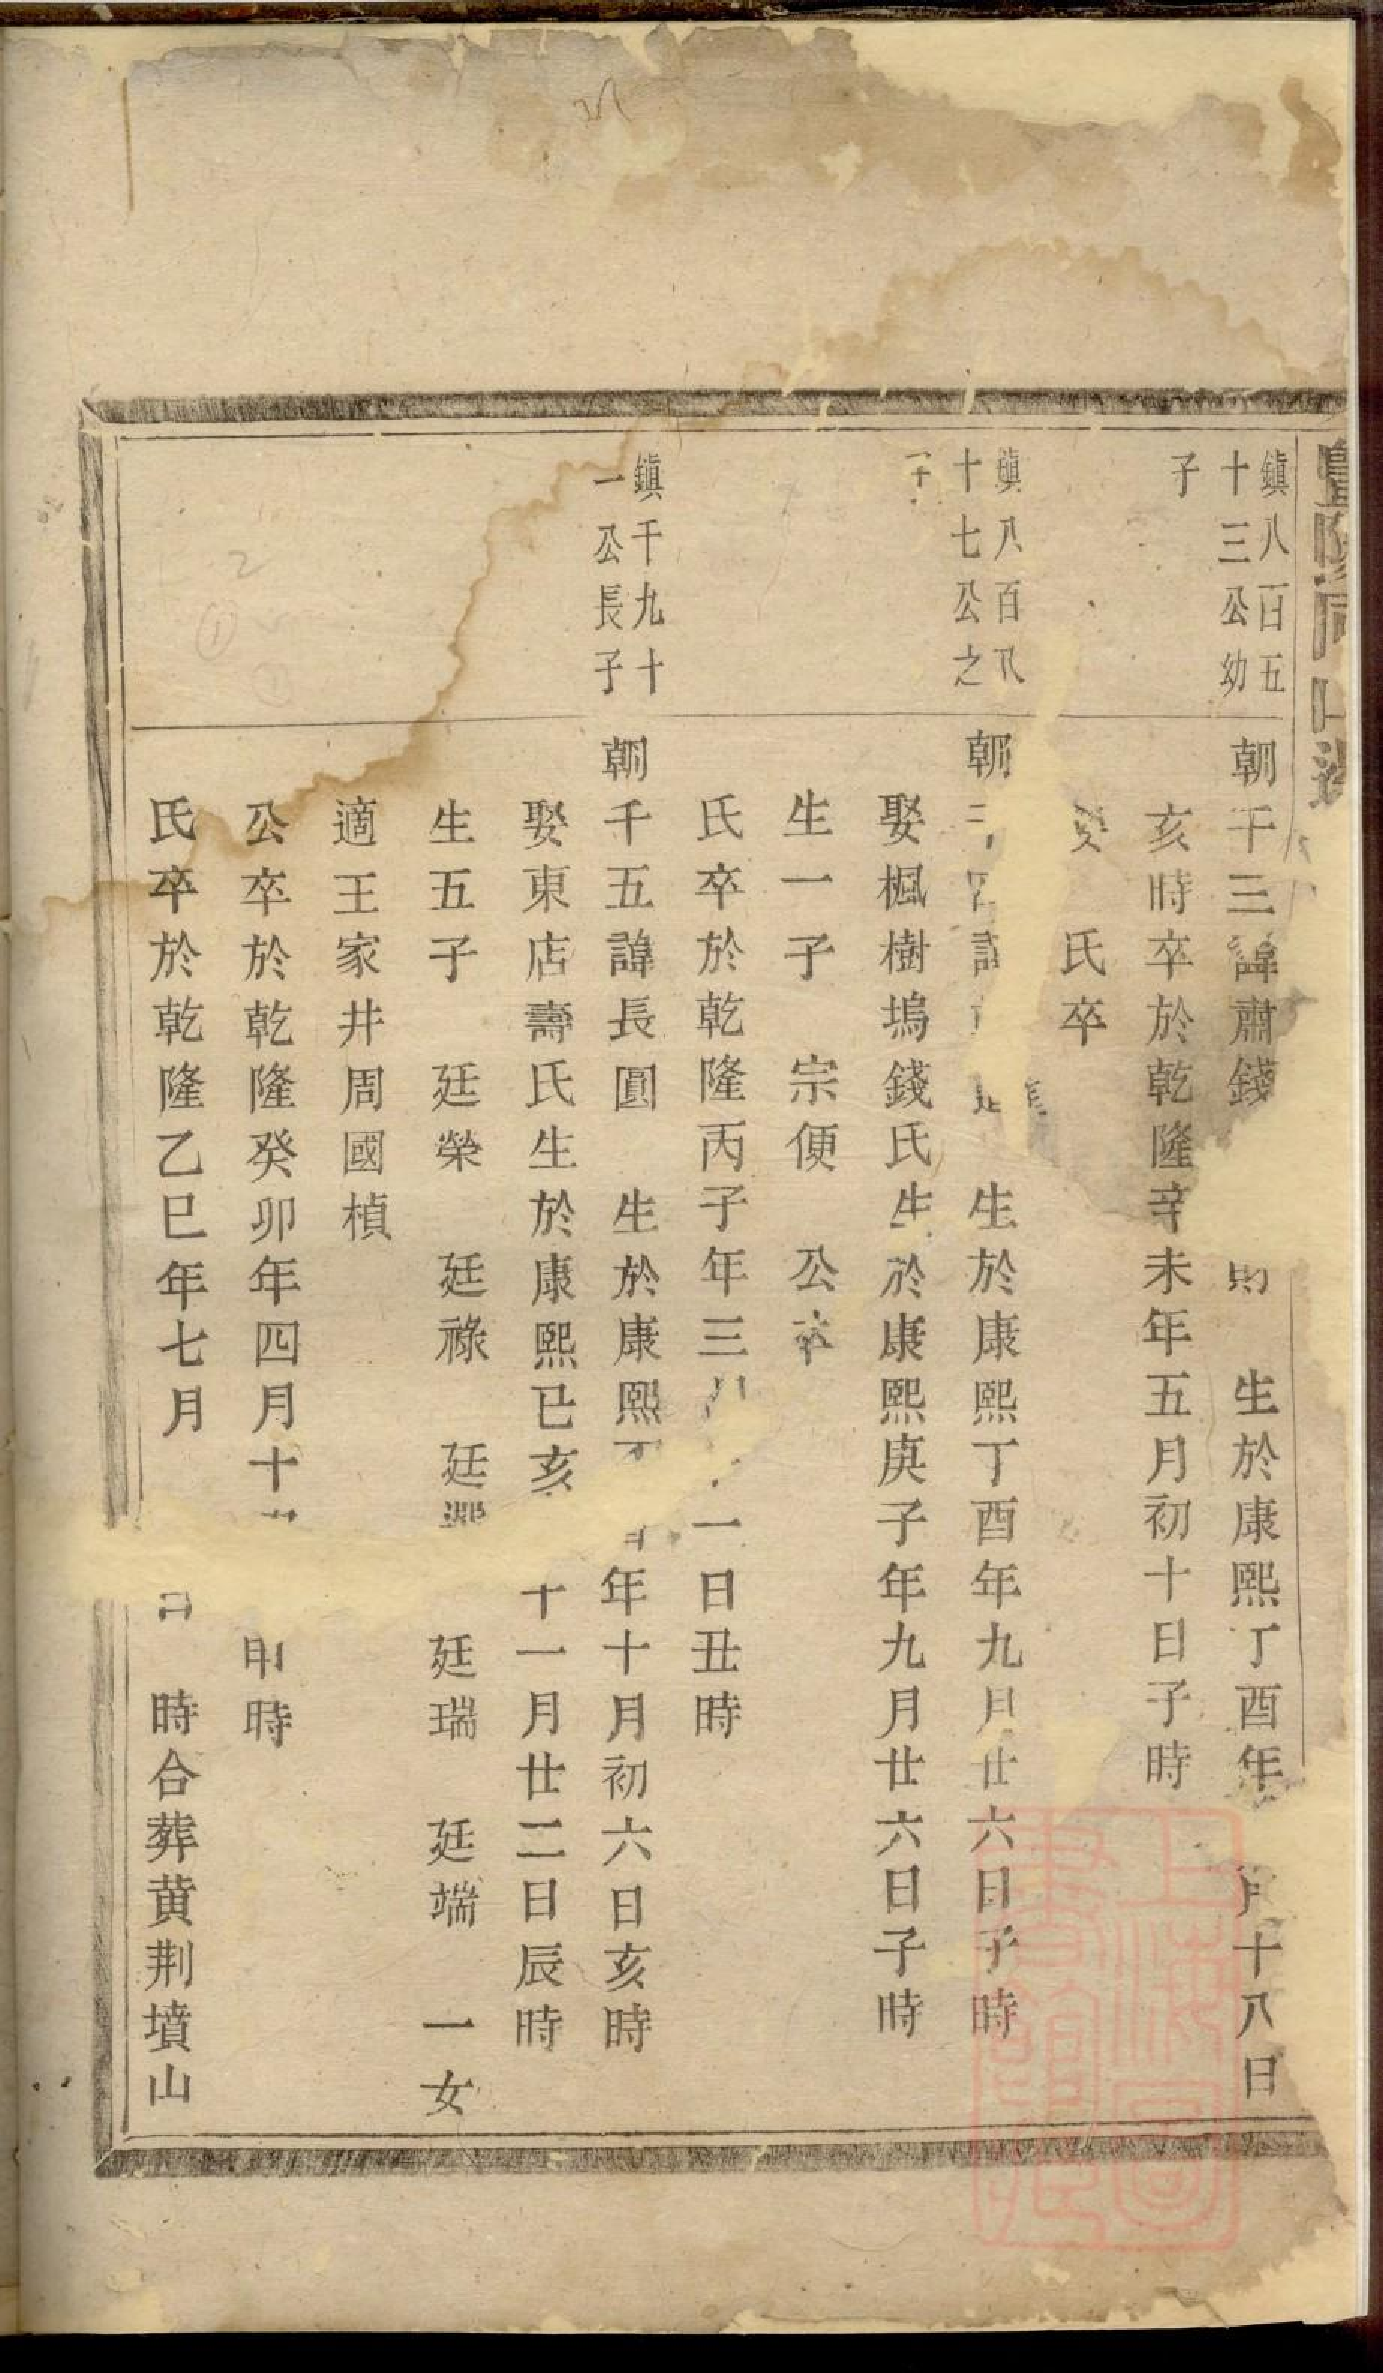 鎮八百五
十三公幼
子
朝千三諱肅錢 生於康熙丁酉年 月十八日
亥時卒於乾隆辛未年五月初十日子時
氏卒
鎮八百八
十七公之
子
朝 生於康熙丁酉年九月廿六日子時
娶楓樹塢錢氏生於康熙庚子年九月廿六日子時
生一子 宗便 公卒
氏卒於乾隆丙子年三 一日丑時
鎮千九十
一公長子
朝千五諱長圓 生於康熙 年十月初六日亥時
娶東店壽氏生於康熙已亥 十一月廿二日辰時
生五子 廷榮 廷祿 廷 廷瑞 廷端 一女
適王家井周國楨
公卒於乾隆癸卯年四月十 時
氏卒於乾隆乙巳年七月 日 時合葬黄荆墳山